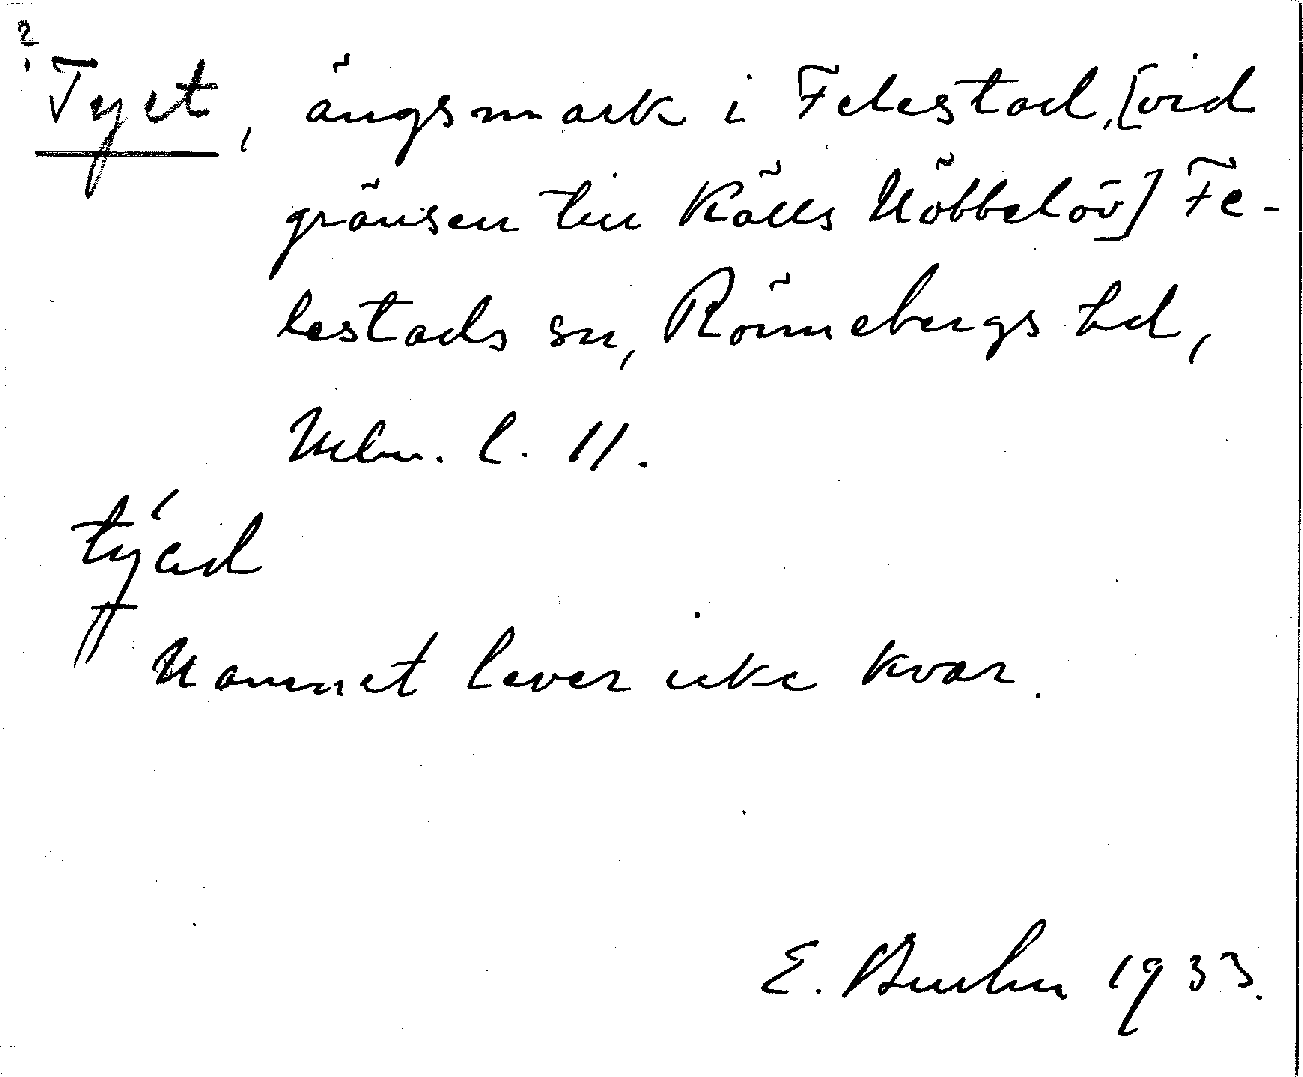 ?
Tyet, ängsmark i Felestad, [vid
gränsen till Källs Nöbbelöv] Fe-
lestads sn, Rönnebergs hd,
Mlm. l. 11.
Namnet lever icke kvar.
E. 1933.